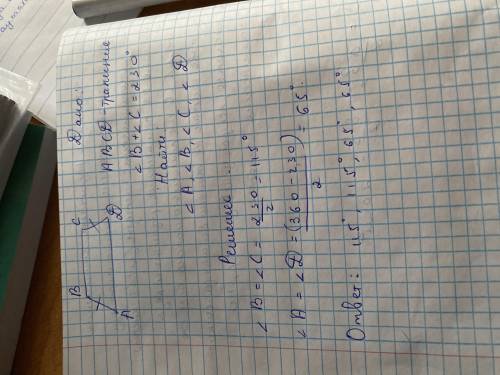 Дано:
ABCD - трапеция
∠B+∠C = 230°
Найти
∠A, ∠B, ∠C, ∠D
B C
A D
Решение
∠B = ∠C = 230/2 = 115°
∠A = ∠D = (360 - 230)/2 = 65°
Ответ: 115°, 115°, 65°, 65°